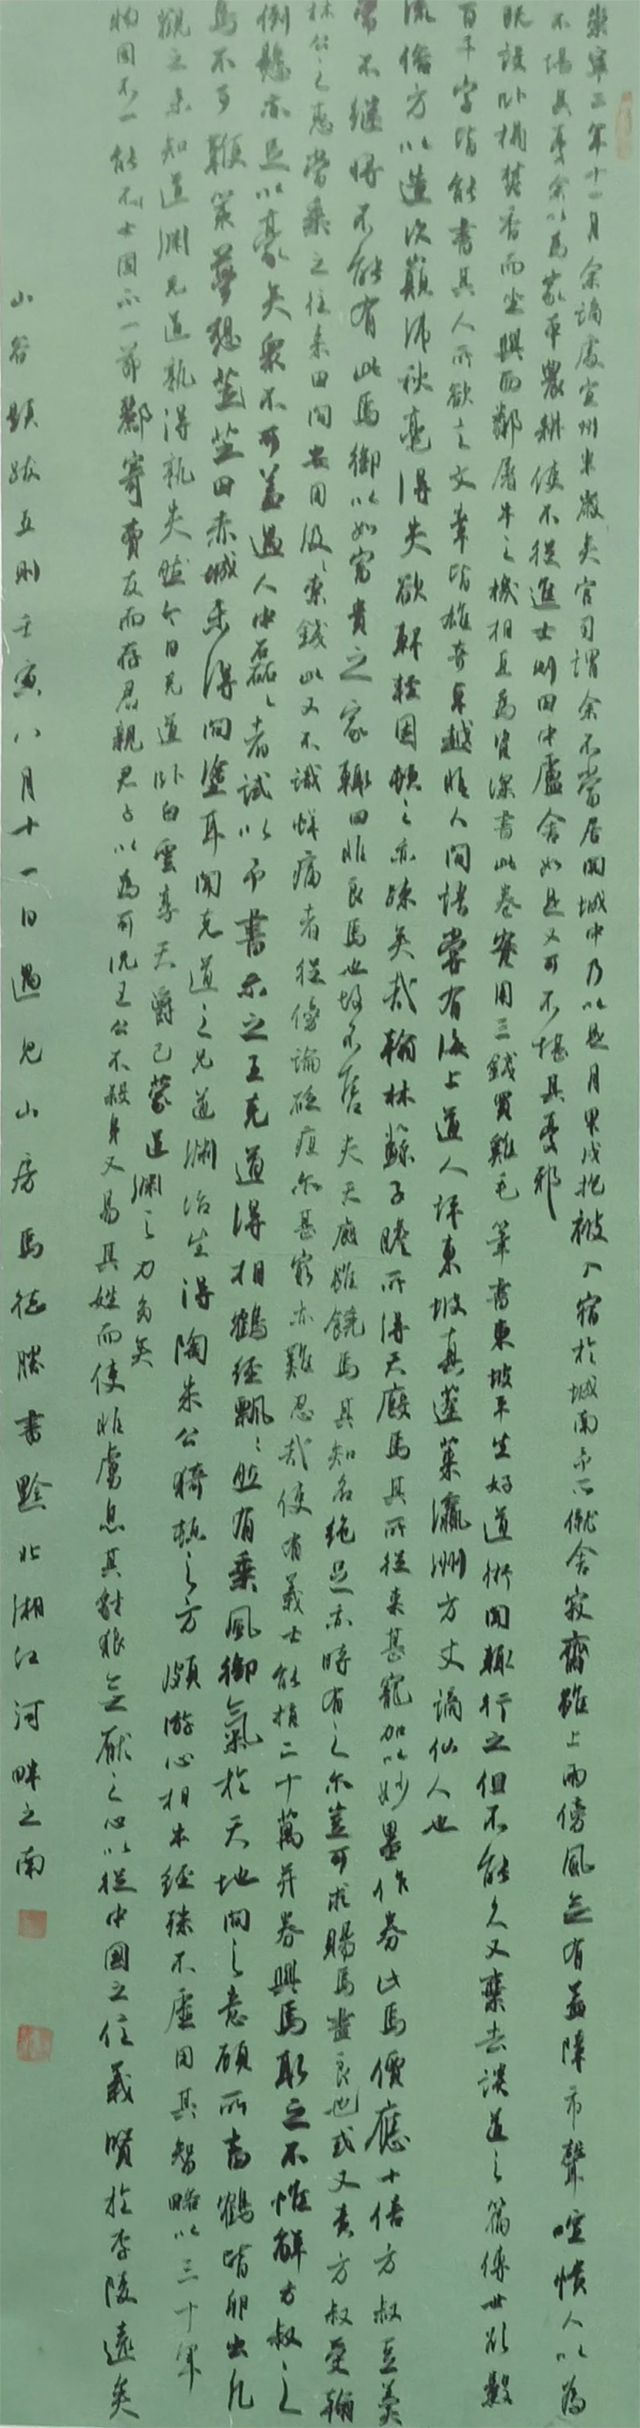 崇寧三年十一月余謫處宜州半歲矣官司謂余不當居關城中乃以是月甲戌抱被入宿於城南予所僦舍寂齋雖上雨傍風無有蓋障市聲喧憒人以為
不堪其憂余以為家本農耕使不從進士則田中廬舍如是又可不堪其憂邪
既設臥榻焚香而坐與西鄰屠牛之機相直為資深書此卷實用三錢買雞毛筆書東坡平生好道術聞輒行之但不能久又棄去談道之篇傳世欲數
百千字皆能書其人所欲言文章皆雄奇卓越非人間語嘗有海上道人評東坡真蓬萊瀛洲方丈謫仙人也
流俗方以造次顛沛秋毫得失欲軒輊困頓之亦疎矣哉翰林蘇子瞻所得天廄馬其所從來甚寵加以妙墨作券此馬價應十倍方叔豆羹
常不繼將不能有此馬御以如富貴之家輒曰非良馬也故不售夫天廄雖饒馬其知名絕足亦時有之爾豈可求賜馬盡良也或又責方叔受翰
林公之惠當乘之往來田間安用汲汲索錢此又不識蛘痛者從傍論砭疽爾甚窮亦難忍哉使有義士能捐二十萬并券與馬取之不惟解方叔之
倒懸亦足以豪矣衆不可蓋遇人中磊磊者試以予書示之王克道得相鶴經飄飄然有乘風御氣於天地間之意顧所畜鶴皆卵出凡
鳥不可鞭策夢想芝田赤城未得間塗耳聞克道之兄道淵治生得陶朱公猗頓之方頗游心相牛經殊不虛用其智略以三十年
觀之未知道淵克道孰得孰失然今日克道臥白雲享天爵已蒙道淵之力多矣
物固不一能士固不一節酈寄賣友而存君親君子以為可況王公不殺身又易其姓而使非虜息其豺狼無厭之心以從中國之信義賢於李陵遠矣
山谷題跋五則壬寅八月十一日過見山房馬德勝書黔北湘江河畔之南